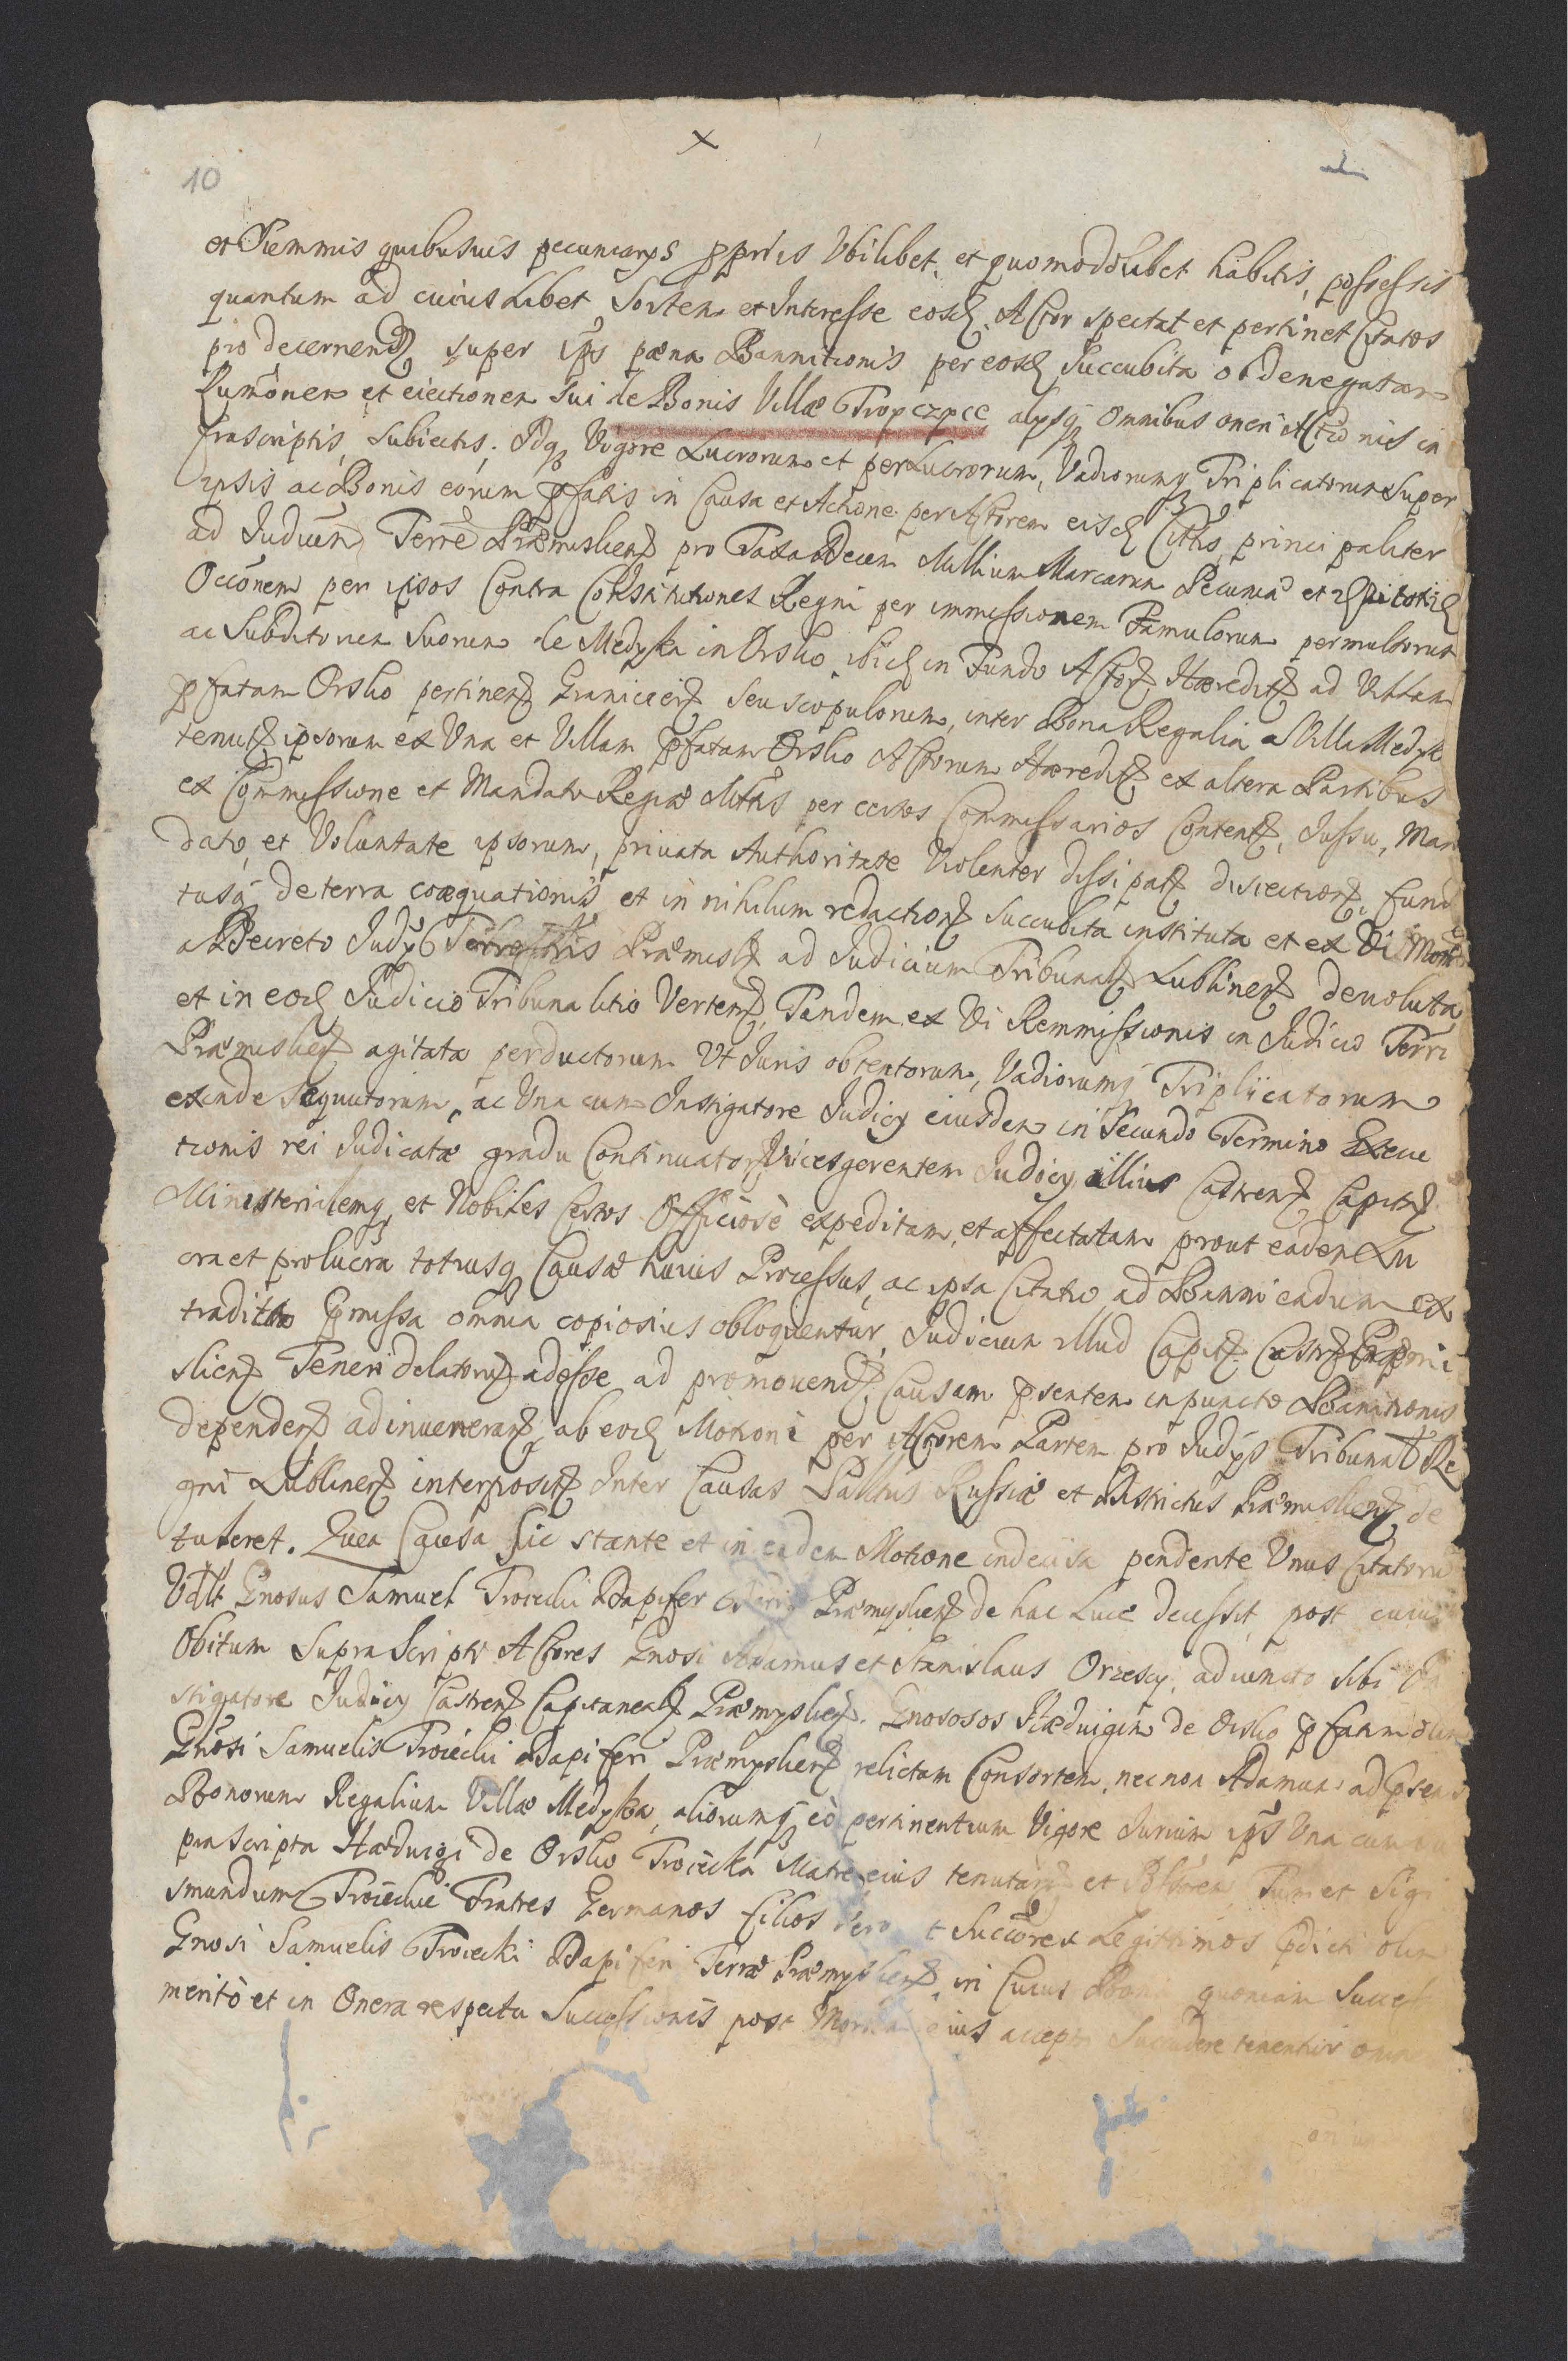 10
et Summis quibusuis pecuniarys ppriis Vbilibet, et quomodolibet habitis, possessis
quantum ad cuius libet, Sortem et Interesse eosd. Actor spectat et pertinet Citatos
pro decernend super ips pæna Bannitionis per eosd Succubita ob denegatam
Rumonem et eiectionem sui de Bonis Villæ Tropczpcc alysq omnibus oneri in
frascriptis, Subiectis; Idq Vigore Lucrorum et perLucrorum, Vadiorumq Triplicatorum Super
ipsis ac Bonis eorum pfatis in Causa et Actione per Actorem eisd Cittis principaliter
ad Iudicm Terre Præmislien pro Taxa Decem Millium Marcarum Pecuniæ et
Occonem per ipsos Contra Constitutiones Regni per immissionem Famulorum permultorum
ac Subditorum Suorum de Medyka in Orsho, ibid in Fundo Actor Hæredit ad Villam
pfatam Orsho pertinen Granicieiz seu scopulorum, inter Bona Regalia a Villa Medyk
tenut ipsorum ex Vna et Villam pfatam Orsho Actorum Hæredit ex altera Partibus
ex Commissione et Mandato Regiæ Mttis per certos Commissarios Content, Iussu, Man
dato, et Voluntate ipsorum, priuata Authoritate Violenter dissipat disiection, fund
tusq de terra coæquationis et in nihilum redaction Succubita instituta et ex Vi Mot
a Decreto Iudy Terrestris Præmisl ad Iudicium Tribunal Lublinen deuoluta
et in eod Iudicio Tribunalitio Verten, Tandem ex Vi Remmissionis in Iudicio Terr
Præmislien agitata perductorum Vt Iuris obtentorum, Vadiorumq Triplicatorum
exinde Sequutorum, ac Vna cum Instigatore Iudicy eiusdem in Secundo Termino Execu
tionis rei Iudicatæ gradu Continuator Vicesgerentem Iudicy illius Castren Capitn
Ministerialemq et Nobiles Certos Officiosè expeditam, et affectatam prout eadem Lu
cra et prolucra totiusq Causæ huius Processus, ac ipsa Citatio ad Banniendum ex
tradita Pmissa omnia copiosius obloquentur, Iudicium illud Capit Castr Præmi
slien Teneri delator adesse ad promouend Causam psentem in puncto Bannitionis
dependen adinuenerant, ab eod Motioni per Actorem Partem pro Iudys Tribunal Re
gni Lublinen interposit Inter Causas Palttus Russiæ et Districtus Præmislien de
tuleret. Quea Causa sic stante et in eadem Motione indecisa pendente Vnus Citatorum
Vdlt Gnosus Samuel Troiecki Dapifer Præmyslien de hac Luce decessit, post cuius
Obitum Supra Scripti Actores Gnosi Adamus et Stanislaus Orzescy, adiuncto sibi In
stigatore Iudicy Castren Capitaneal Præmyslien. Gnososos Hæduigim de Orsho pfatam olim
Gnosi Samuelis Troiecki Dapiferi Præmyslien relictam Consortem, nec non Adamum ad psens
Bonorum Regalium Villæ Medyka, aliorumq eò pertinentium Vigore Iurium ips Vna cum su
prascripta Hæduigi de Orsho Troiecka Matre eius tenutar et Pssorem Tum et Sigi
smundum Troieckie Fratres Germanos filios Vero et Succores Legittimos pdicti olim
Gnosi Samuelis Troiecki Dapiferi Terræ Præmyslien, in Cuius Bona quoniam Success
meritò et in Onera respectu Successionis post Mortem eius accept Succedere tenentur